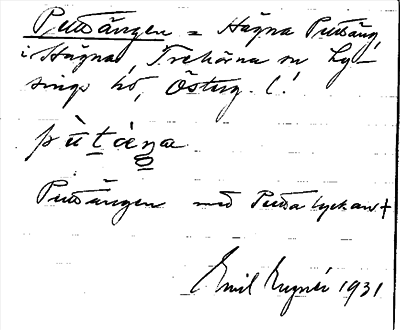 Putsängen = Hägna Putsäng
i Hägna, Trehörna sn Ly-
sings hd, Österg. l.!
pùtàŋa
Putsängen med Putsalyckan +
Emil Lugnér 1931